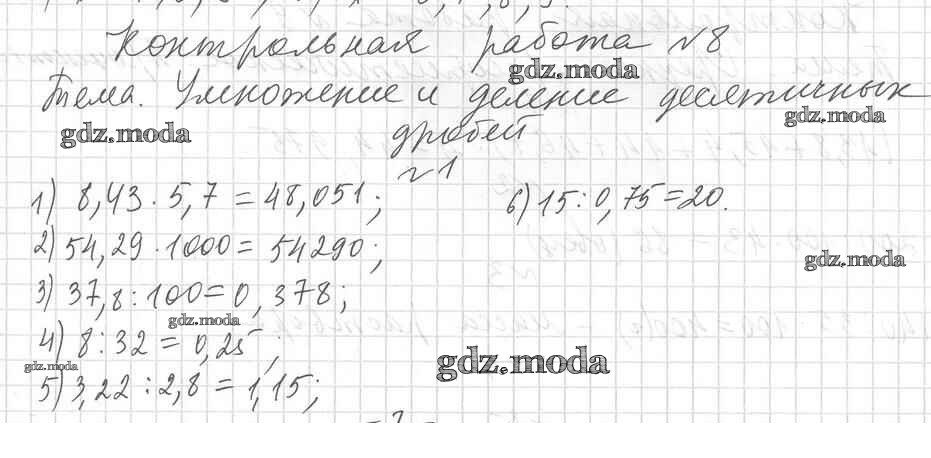 Контрольная работа №8
gdz.moda
Тема. Умножение и деление десятичных
gdz.moda
gdz.moda
дробей
№1
1) 8,43 · 5,7 = 48,051;
6) 15 : 0,75 = 20.
2) 54,29 · 1000 = 54290;
gdz.moda
3) 37,8 : 100 = 0,378;
gdz.moda
4) 8 : 32 = 0,25;
gdz.moda
gdz.moda
5) 3,22 : 2,8 = 1,15;